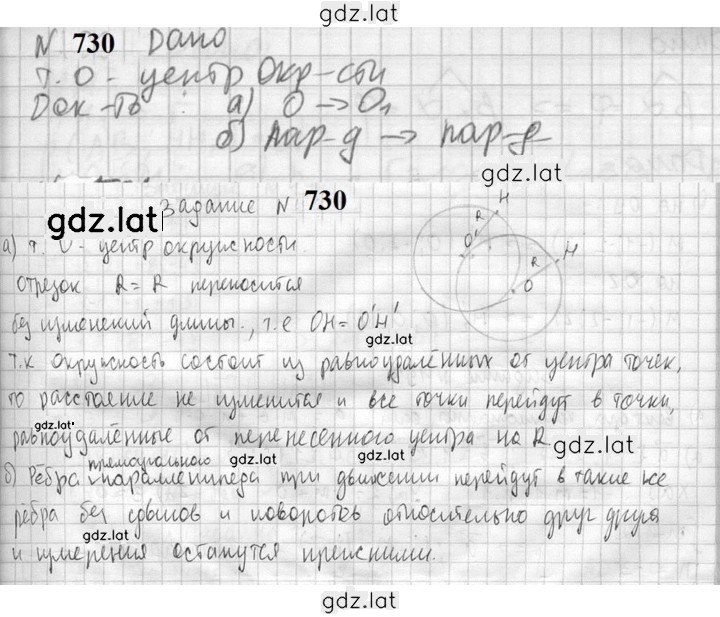 gdz.lat
N 730 Дано
т. О - центр Окр-сти
Док-ть : а) О → О₁
б) пар-д → пар-д
Задание N 730
gdz.lat
а) т. О - центр окружности.
Отрезок R = R переносится
без изменений длины, т.е OH = O'H'
т.к Окружность состоит из равноудалённых от центра точек,
то расстояние не изменится и все точки перейдут в точки,
gdz.lat
равноудалённые от перенесённого центра на R
gdz.lat
прямоугольного
gdz.lat
gdz.lat
б) Рёбра параллепипеда при движении перейдут в такие же
рёбра без сдвигов и поворотов относительно друг друга
gdz.lat
и измерения останутся прежними.
H
R
O'
H
R
O
gdz.lat